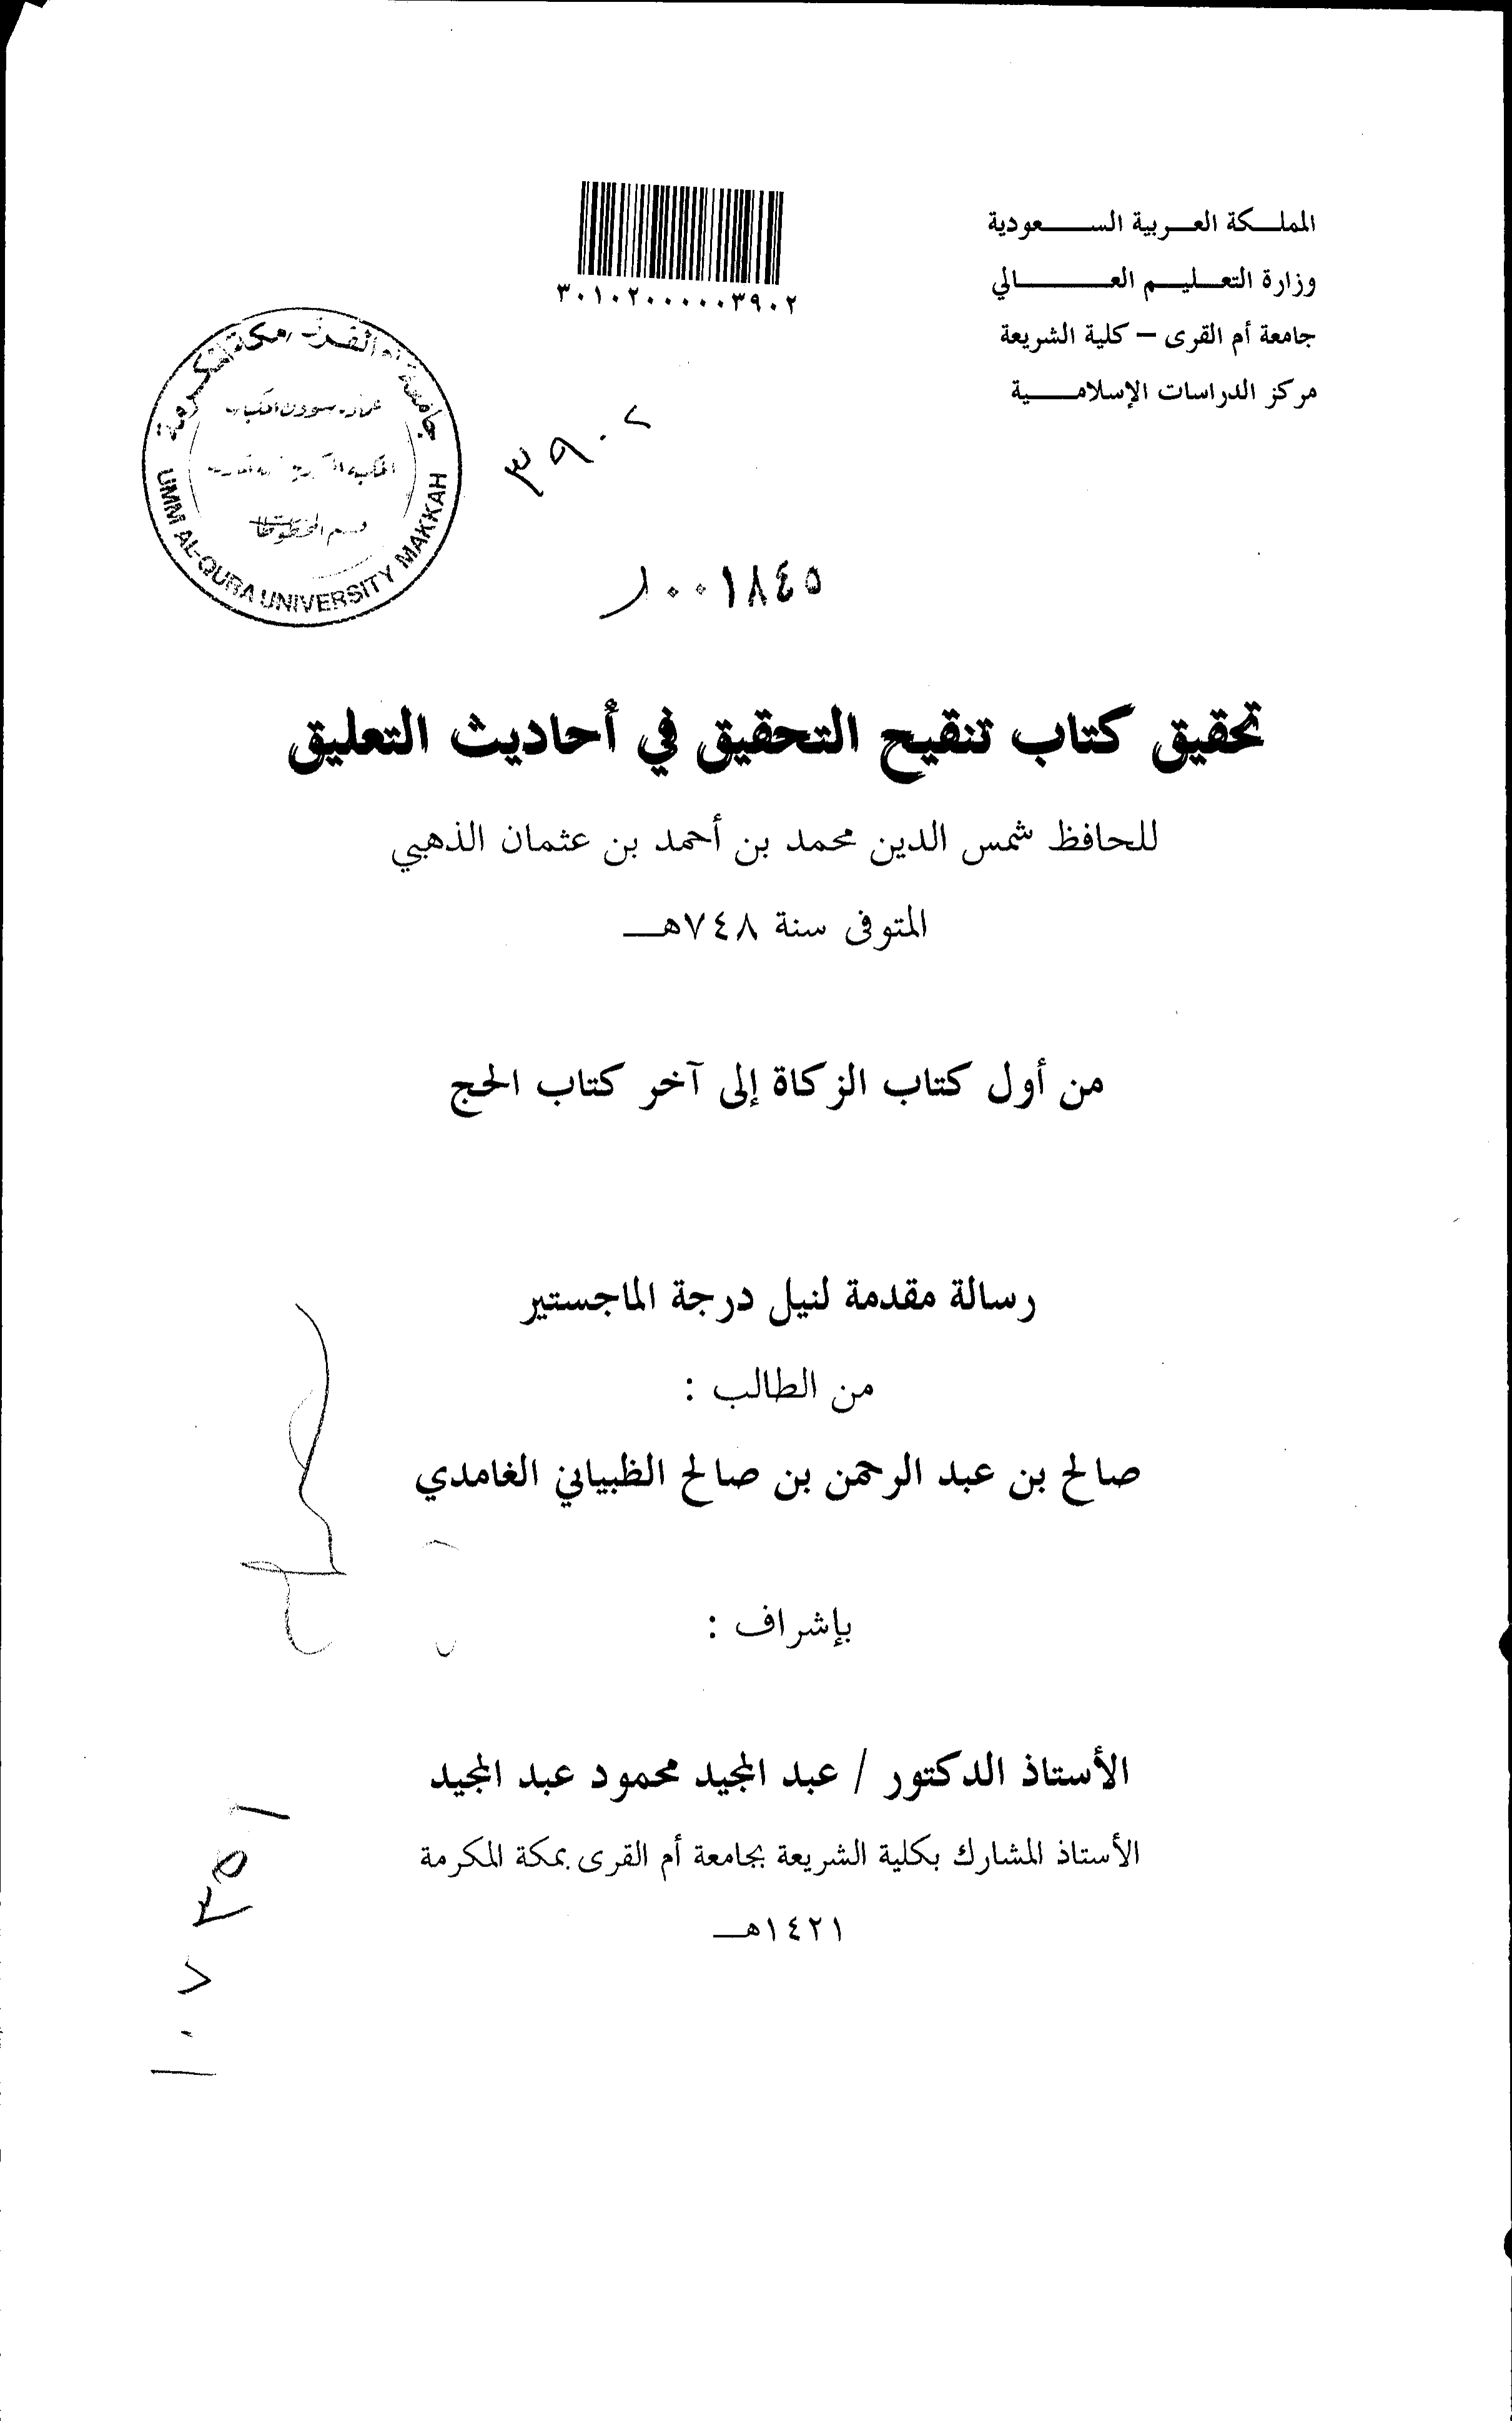 المملكة العربية السعودية
وزارة التعليم العالي
جامعة أم القرى – كلية الشريعة
مركز الدراسات الإسلامية
٣٠١٠٢٠٠٠٠٠٣٩٠٢
جامعة أم القرى مكة المكرمة
قسم المخطوطات
UMM AL-QURA UNIVERSITY MAKKAH
٣٩٠٢
١٠٠١٨٤٥
تحقيق كتاب تنقيح التحقيق في أحاديث التعليق
للحافظ شمس الدين محمد بن أحمد بن عثمان الذهبي
المتوفى سنة ٧٤٨هـ
من أول كتاب الزكاة إلى آخر كتاب الحج
رسالة مقدمة لنيل درجة الماجستير
من الطالب :
صالح بن عبد الرحمن بن صالح الظبياني الغامدي
بإشراف :
الأستاذ الدكتور / عبد المجيد محمود عبد المجيد
الأستاذ المشارك بكلية الشريعة بجامعة أم القرى بمكة المكرمة
١٤٢١هـ